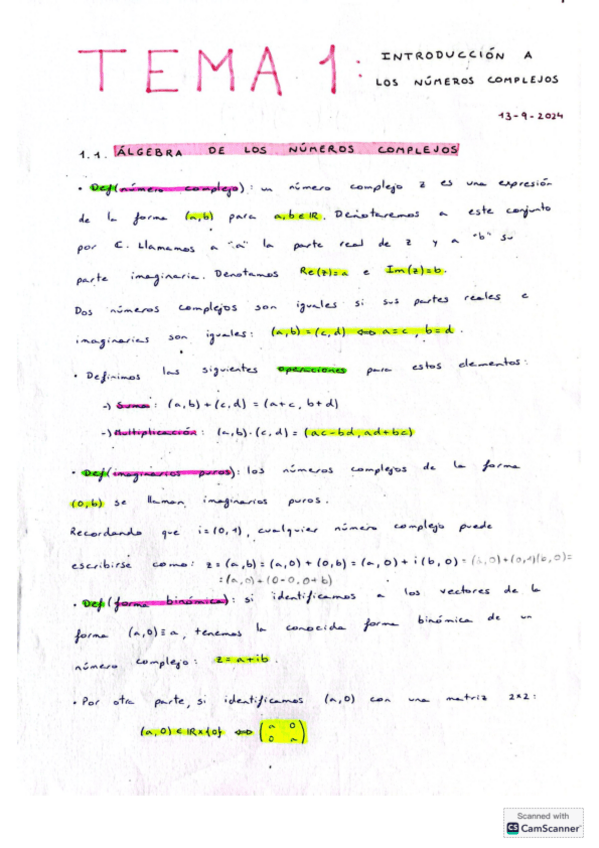 TEMA 1: INTRODUCCIÓN A
LOS NÚMEROS COMPLEJOS
13-9-2024
1.1. ÁLGEBRA DE LOS NÚMEROS COMPLEJOS
• Def (número complejo): un número complejo z es una expresión
de la forma (a,b) para a,b∈ℝ. Denotaremos a este conjunto
por ℂ. Llamamos a "a" la parte real de z y a "b" su
parte imaginaria. Denotamos Re(z)=a e Im(z)=b.
Dos números complejos son iguales si sus partes reales e
imaginarias son iguales: (a,b)=(c,d) ⇔ a=c, b=d.
• Definimos las siguientes operaciones para estos elementos:
→) Suma: (a,b)+(c,d)=(a+c, b+d)
→) Multiplicación: (a,b)·(c,d)=(ac-bd, ad+bc)
• Def (imaginarios puros): los números complejos de la forma
(0,b) se llaman imaginarios puros.
Recordando que i=(0,1), cualquier número complejo puede
escribirse como: z=(a,b)=(a,0)+(0,b)=(a,0)+i(b,0)=(a,0)+(0,1)(b,0)=
=(a,0)+(0-0,0+b)
• Def (forma binómica): si identificamos a los vectores de la
forma (a,0)≡a, tenemos la conocida forma binómica de un
número complejo: z=a+ib.
• Por otra parte, si identificamos (a,0) con una matriz 2×2:
(a,0)∈ℝ×{0} ⇔ (a 0
0 a)
Scanned with
CS CamScanner